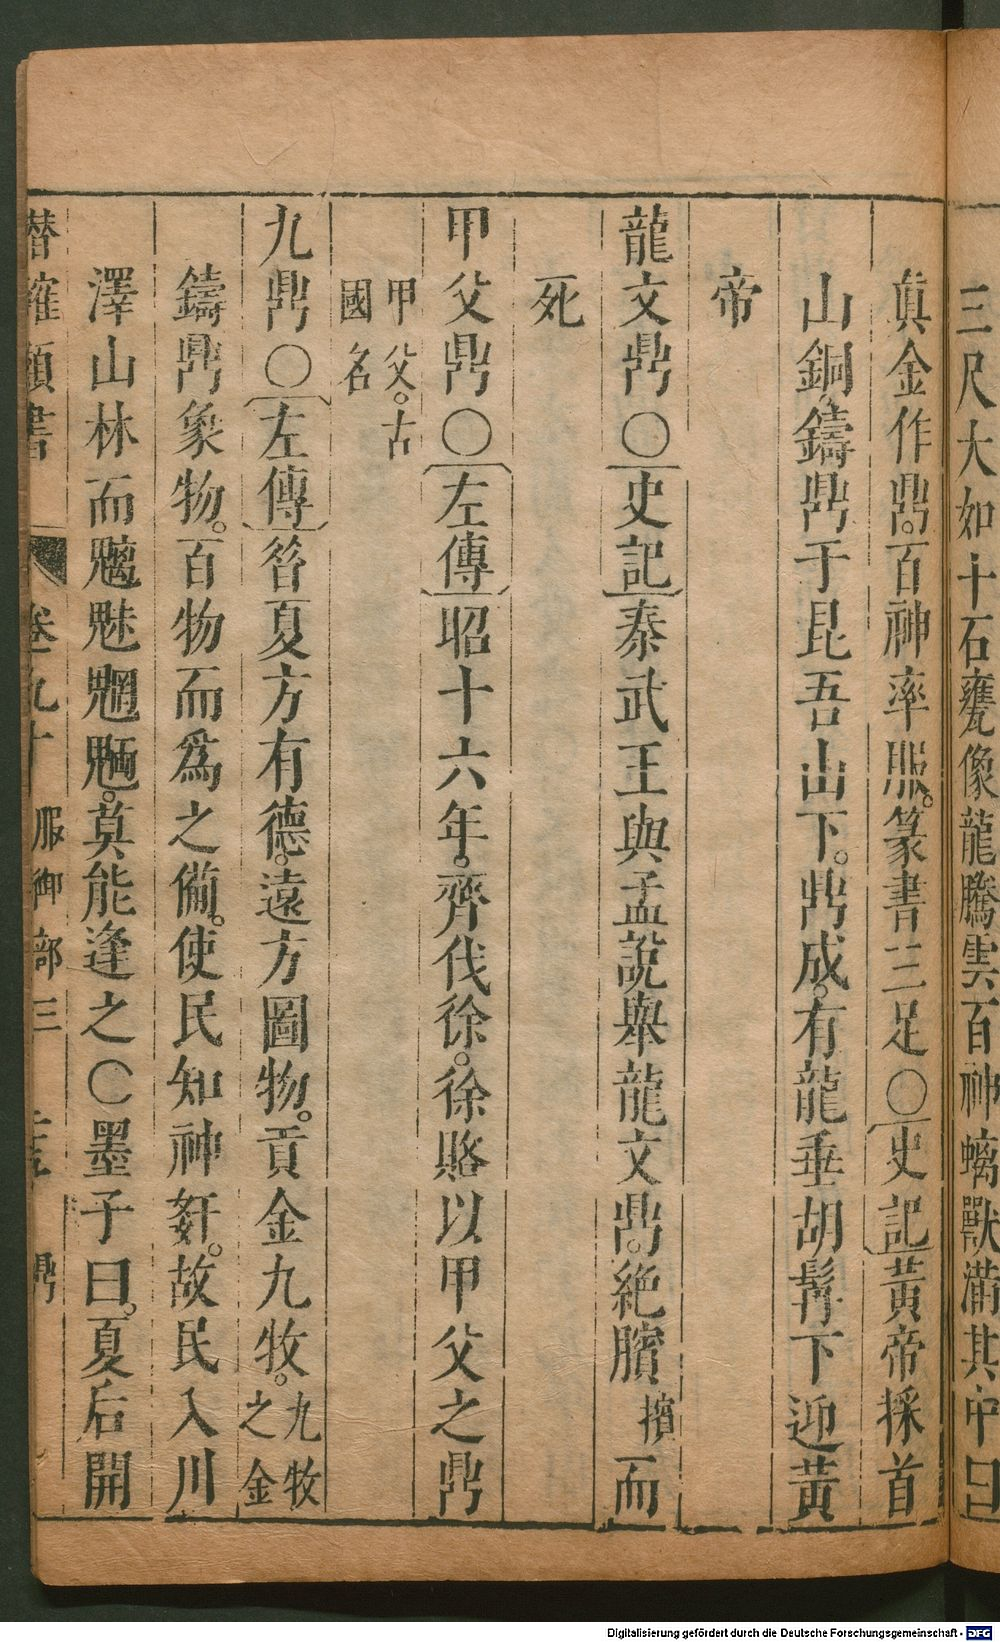 三尺大如十石甕像龍騰雲百神螭獸滿其中曰
真金作鼎。百神率服。篆書三足〇史記黃帝採首
山銅。鑄鼎于昆吾山下。鼎成。有龍垂胡髯下迎黃
帝
龍文鼎〇史記秦武王與孟說舉龍文鼎。絕臏擯而
死
甲父鼎〇左傳昭十六年。齊伐徐。徐賂以甲父之鼎
甲父。古國名
九鼎〇左傳昝夏方有德。遠方圖物。貢金九牧。九牧之金
鑄鼎象物。百物而爲之備。使民知神姧。故民入川
澤山林而魑魅魍魎。莫能逢之〇墨子曰。夏后開
潛確類書 卷九十 服御部三 鼎
Digitalisierung gefördert durch die Deutsche Forschungsgemeinschaft - DFG